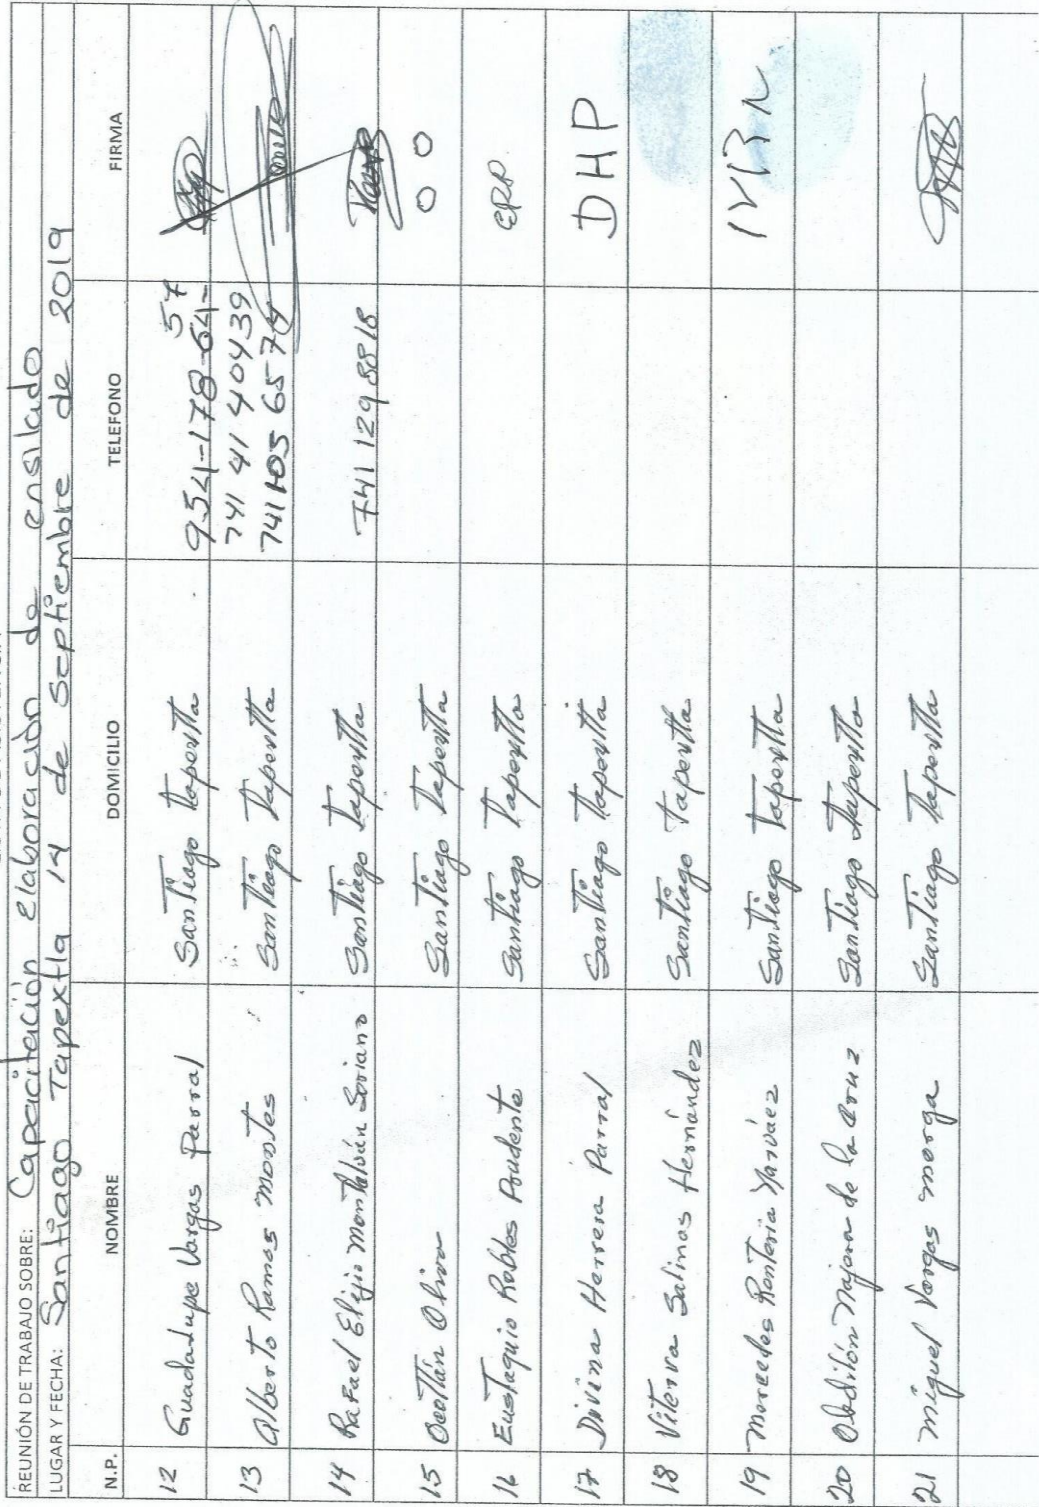 REUNIÓN DE TRABAJO SOBRE: Capacitación Elaboración de ensilado
LUGAR Y FECHA: Santiago Tapextla 14 de Septiembre de 2019
N.P. NOMBRE DOMICILIO TELEFONO FIRMA
12 Guadadupe Vargas Parral Santiago Tapextla 954-178-64-57
13 Alberto Ramos montes Santiago Tapextla 741 41 40439
741 105 65 74
14 Rafael Elijio Montalván Soriano Santiago Tapextla 741 129 8818
15 Ocotlán Oliva Santiago Tapextla O O
16 Eustaquio Robles Prudente Santiago Tapextla ERP
17 Divina Herrera Parral Santiago Tapextla DHP
18 Viterva Salinas Hernández Santiago Tapextla
19 Mercedes Rentería Narváez Santiago Tapextla
20 Obdilón Najera de la Cruz Santiago Tapextla
21 Miguel Vargas morga Santiago Tapextla